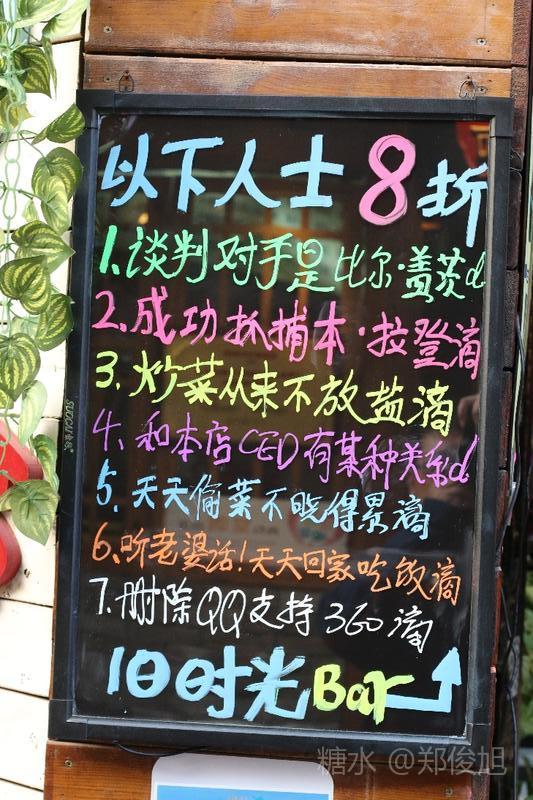 以下人士8折
1.谈判对手是比尔·盖茨d
2.成功抓捕本·拉登滴
3.炒菜从来不放盐滴
4.和本店CEO有某种关系d
5.天天偷菜不晓得累滴
6.听老婆话!天天回家吃饭滴
7.删除QQ支持360滴
旧时光Bar
SUCCN
糖水 @郑俊旭